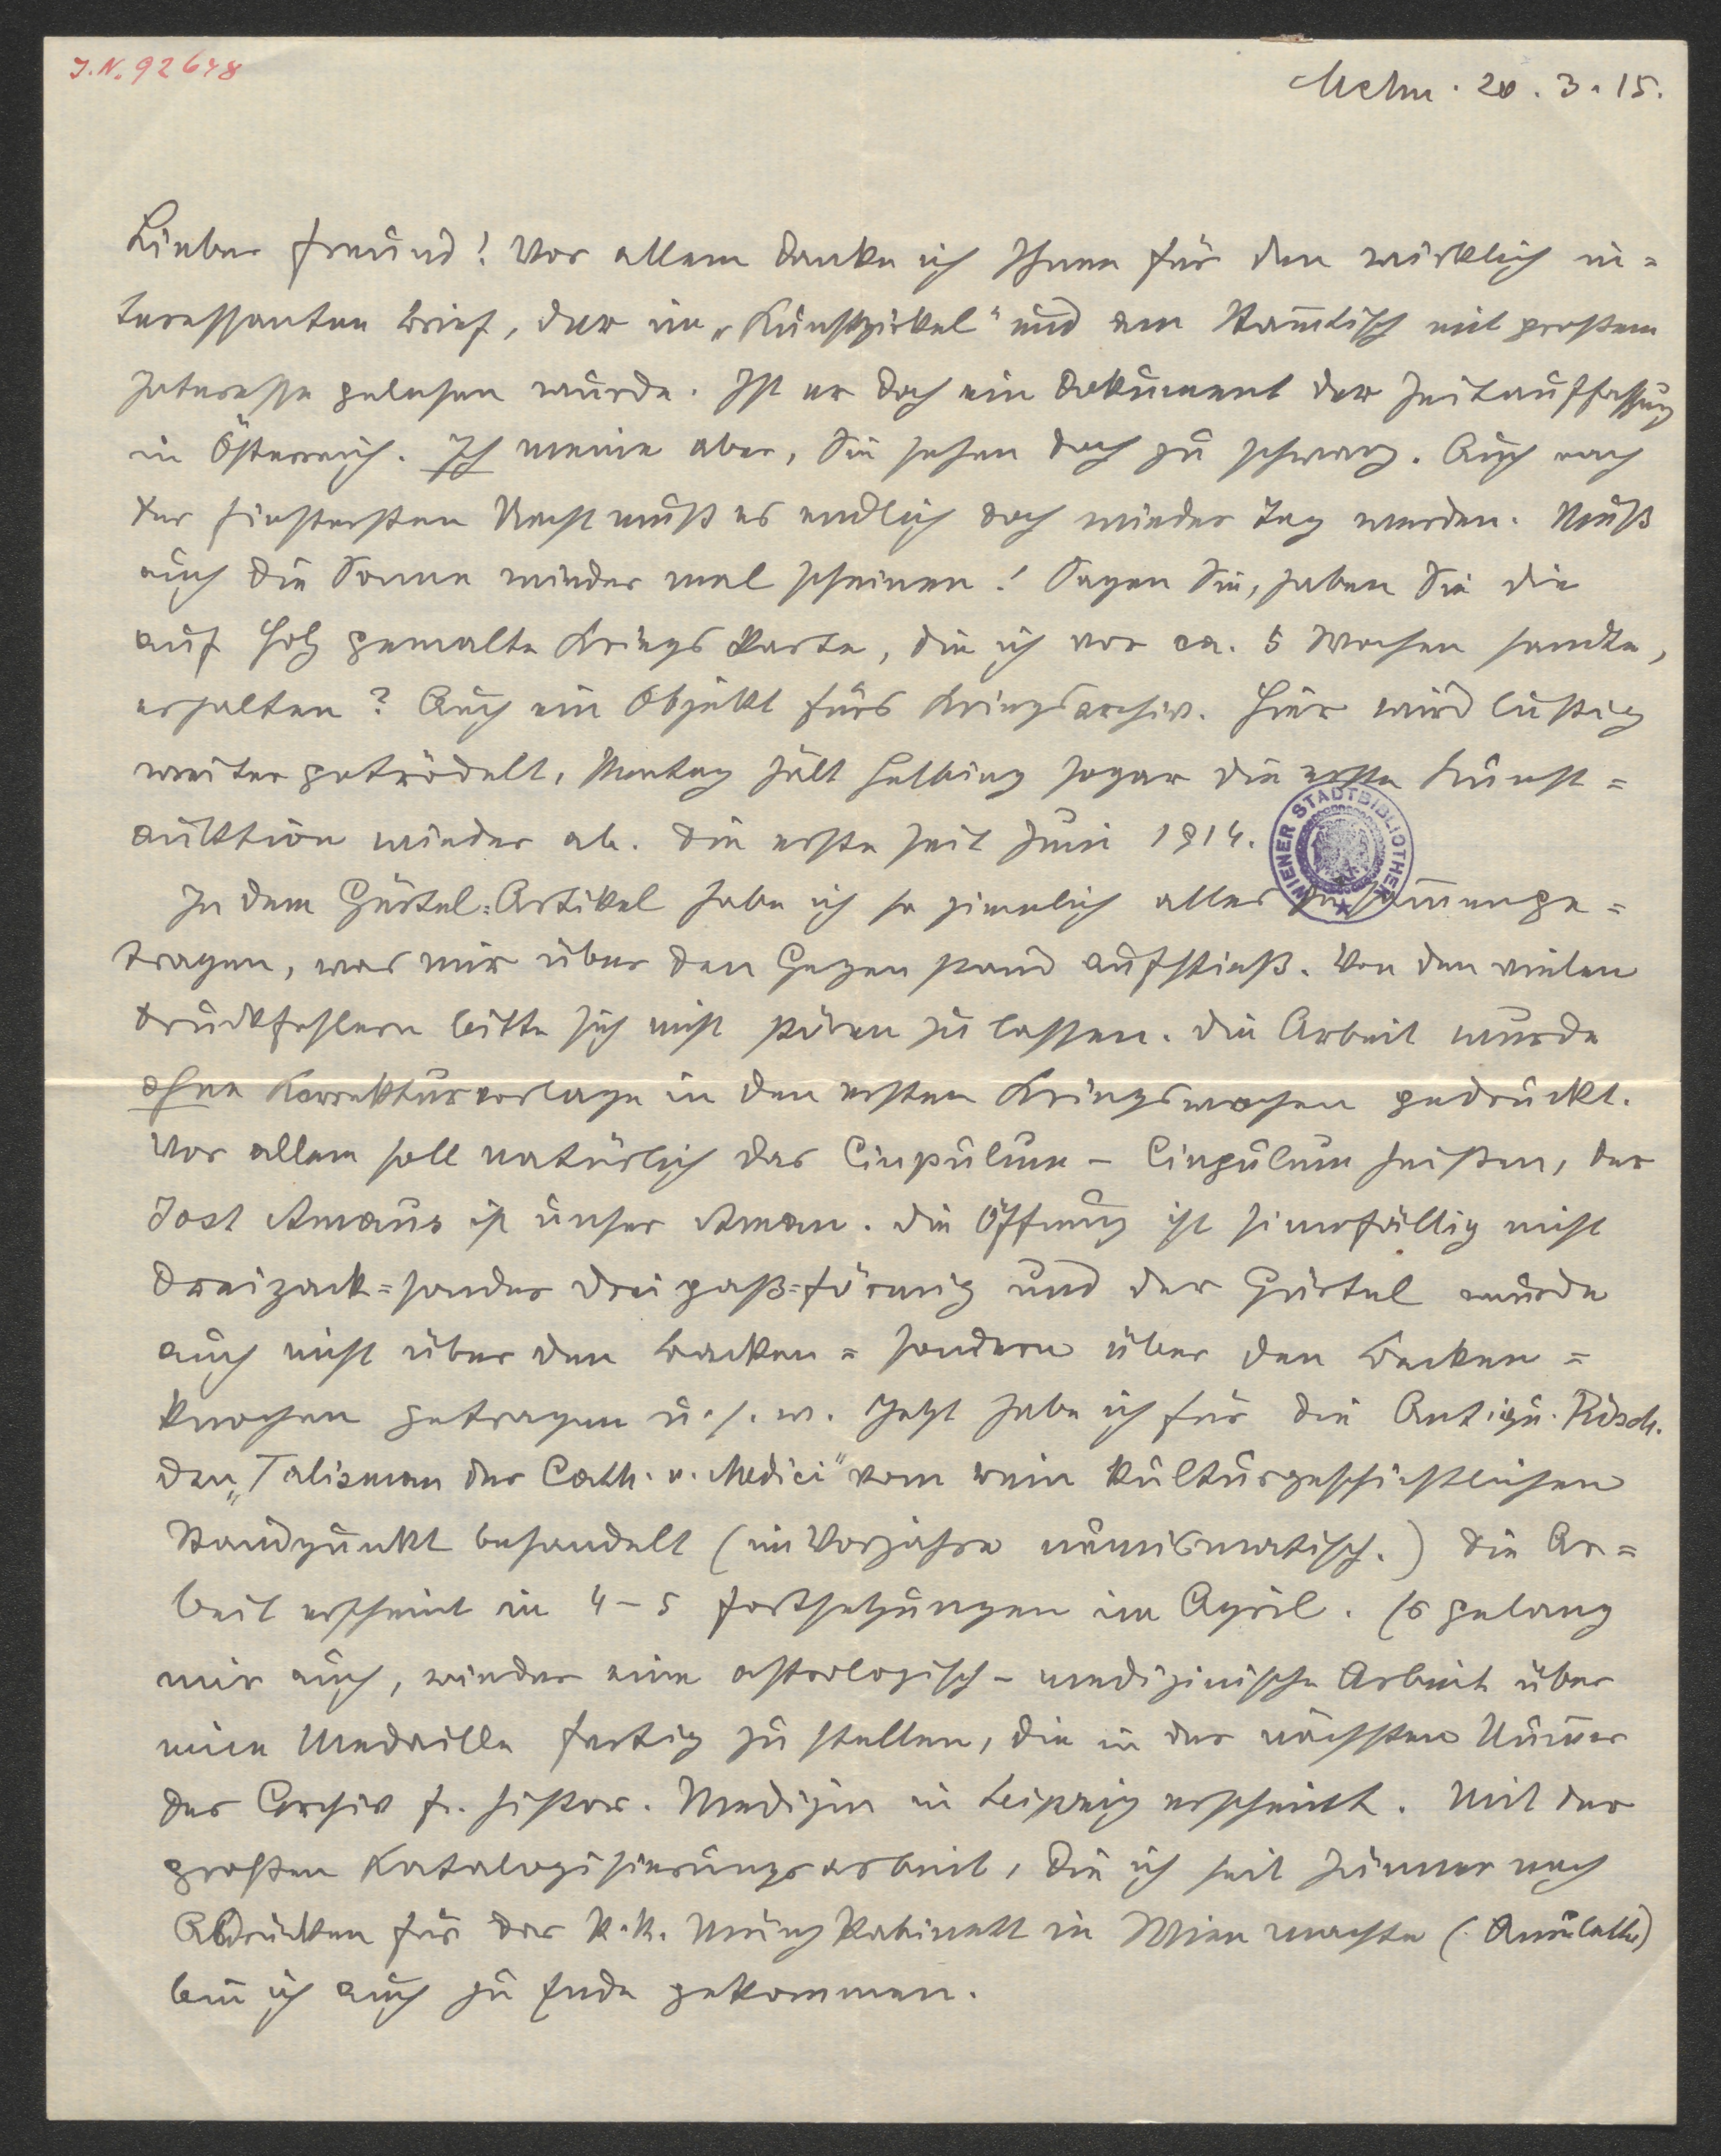 J.N. 92648
Mchn. 20.3.15.
Lieber Freund! Vor allem danke ich Ihnen für den wirklich in=
teressanten Brief, der im „Kunstzirkel" und am Stam̅tisch mit großem
Interesse gelesen wurde. Ist er doch ein Dokument der Zeitauffassung
in Österreich. Ich meine aber, Sie sehen doch zu schwarz. Auch nach
der finstersten Nacht muß es endlich doch wieder Tag werden. Muß
auch die Sonne wieder mal scheinen! Sagen Sie, haben Sie die
auf Holz gemalte Kriegskarte, die ich vor ca. 5 Wochen sandte,
erhalten? Auch ein Objekt fürs Kriegsarchiv. Hier wird lustig
weiter getrödelt, Montag hält Helbing sogar die erste Kunst=
auktion wieder ab. Die erste seit Juni 1914.
WIENER STADTBIBLIOTHEK
In dem Gürtel=Artikel habe ich so ziemlich alles zusam̅enge=
tragen, was mir über den Gegenstand aufstieß. Von den vielen
Druckfehlern bitte sich nicht stören zu lassen. Die Arbeit wurde
ohne Korrekturvorlage in den ersten Kriegswochen gedruckt.
Vor allem soll natürlich das Cinpulum – Cingulum heißen, der
Jost Amaus ist unser Aman. Die Öffnung ist sinnfällig nicht
Dreizack= sonder Dreipaß=förmig und der Gürtel wurde
auch nicht über den Backen= sondern über den Becken=
knochen getragen u.s.w. Jetzt habe ich für die Antiqu. Rdsch.
den „Talisman der Cath. v. Medici" vom rein kulturgeschichtlichen
Standpunkt behandelt (im Vorjahre numismatisch.) Die Ar=
beit erscheint in 4–5 Fortsetzungen im April. Es gelang
mir auch, wieder eine astrologisch–medizinische Arbeit über
eine Medaille fertig zu stellen, die in der nächsten Num̅er
des Archiv f. histor. Medizin in Leipzig erscheint. Mit der
großen Katalogisierungsarbeit, die ich seit Jänner nach
Abdrücken für das k.k. Münzkabinett in Wien machte (Amulette)
bin ich auch zu Ende gekommen.